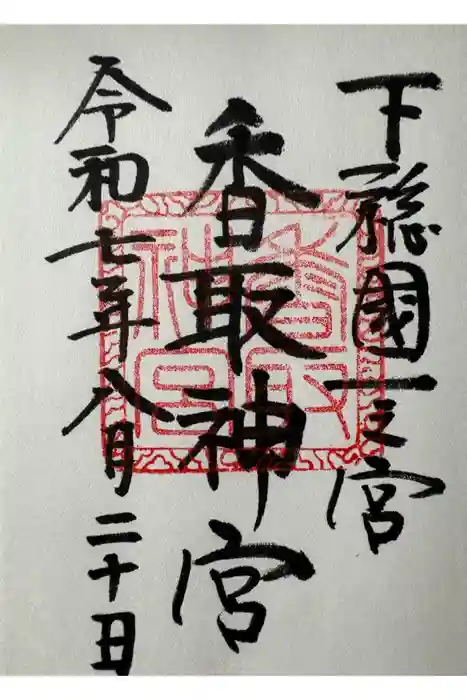 下總國一之宮
香取神宮
令和七年八月二十日
香取神宮